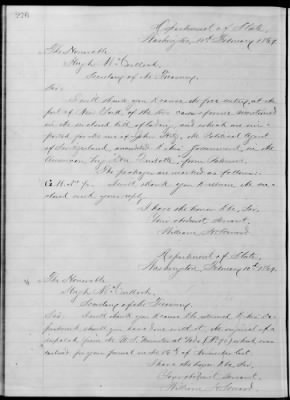 276
Department of State,
Washington, 10th February 1869.
The Honorable
Hugh McCulloch,
Secretary of the Treasury.
Sir:
I will thank you to cause the free entry, at the
port of New York, of the two cases of wine mentioned
in the enclosed bill of lading, and which are im-
ported for the use of John Hitz, the Political Agent
of Switzerland accredited to this Government, in the
American Brig from Palermo.
The packages are marked as follows:
I will thank you to return the en-
closed with your reply.
I have the honor to be, Sir,
Your obedient servant,
William H. Seward.
Department of State,
Washington, February 10th 1869.
The Honorable
Hugh McCulloch,
Secretary of the Treasury.
Sir: I will thank you to cause to be returned to this De-
partment, should you have done with it, the original of a
despatch from the U.S. Minister at which was
enclosed for your perusal on the of last.
I have the honor to be, Sir,
Your obedient servant,
William H. Seward.